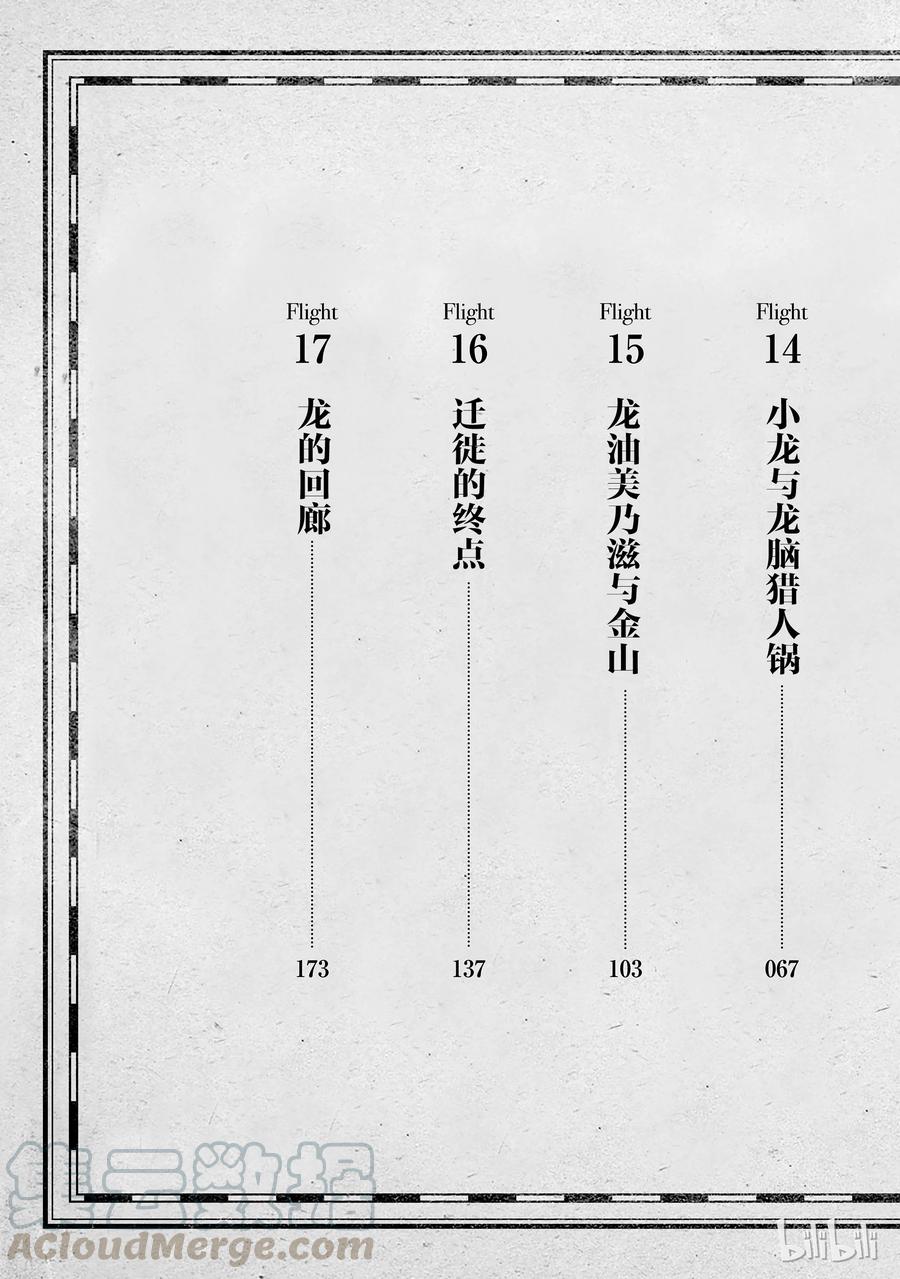 Flight
14
小龙与龙脑猎人锅
067
Flight
15
龙油美乃滋与金山
103
Flight
16
迁徙的终点
137
Flight
17
龙的回廊
173
集云数据
ACloudMerge.com
bilibili